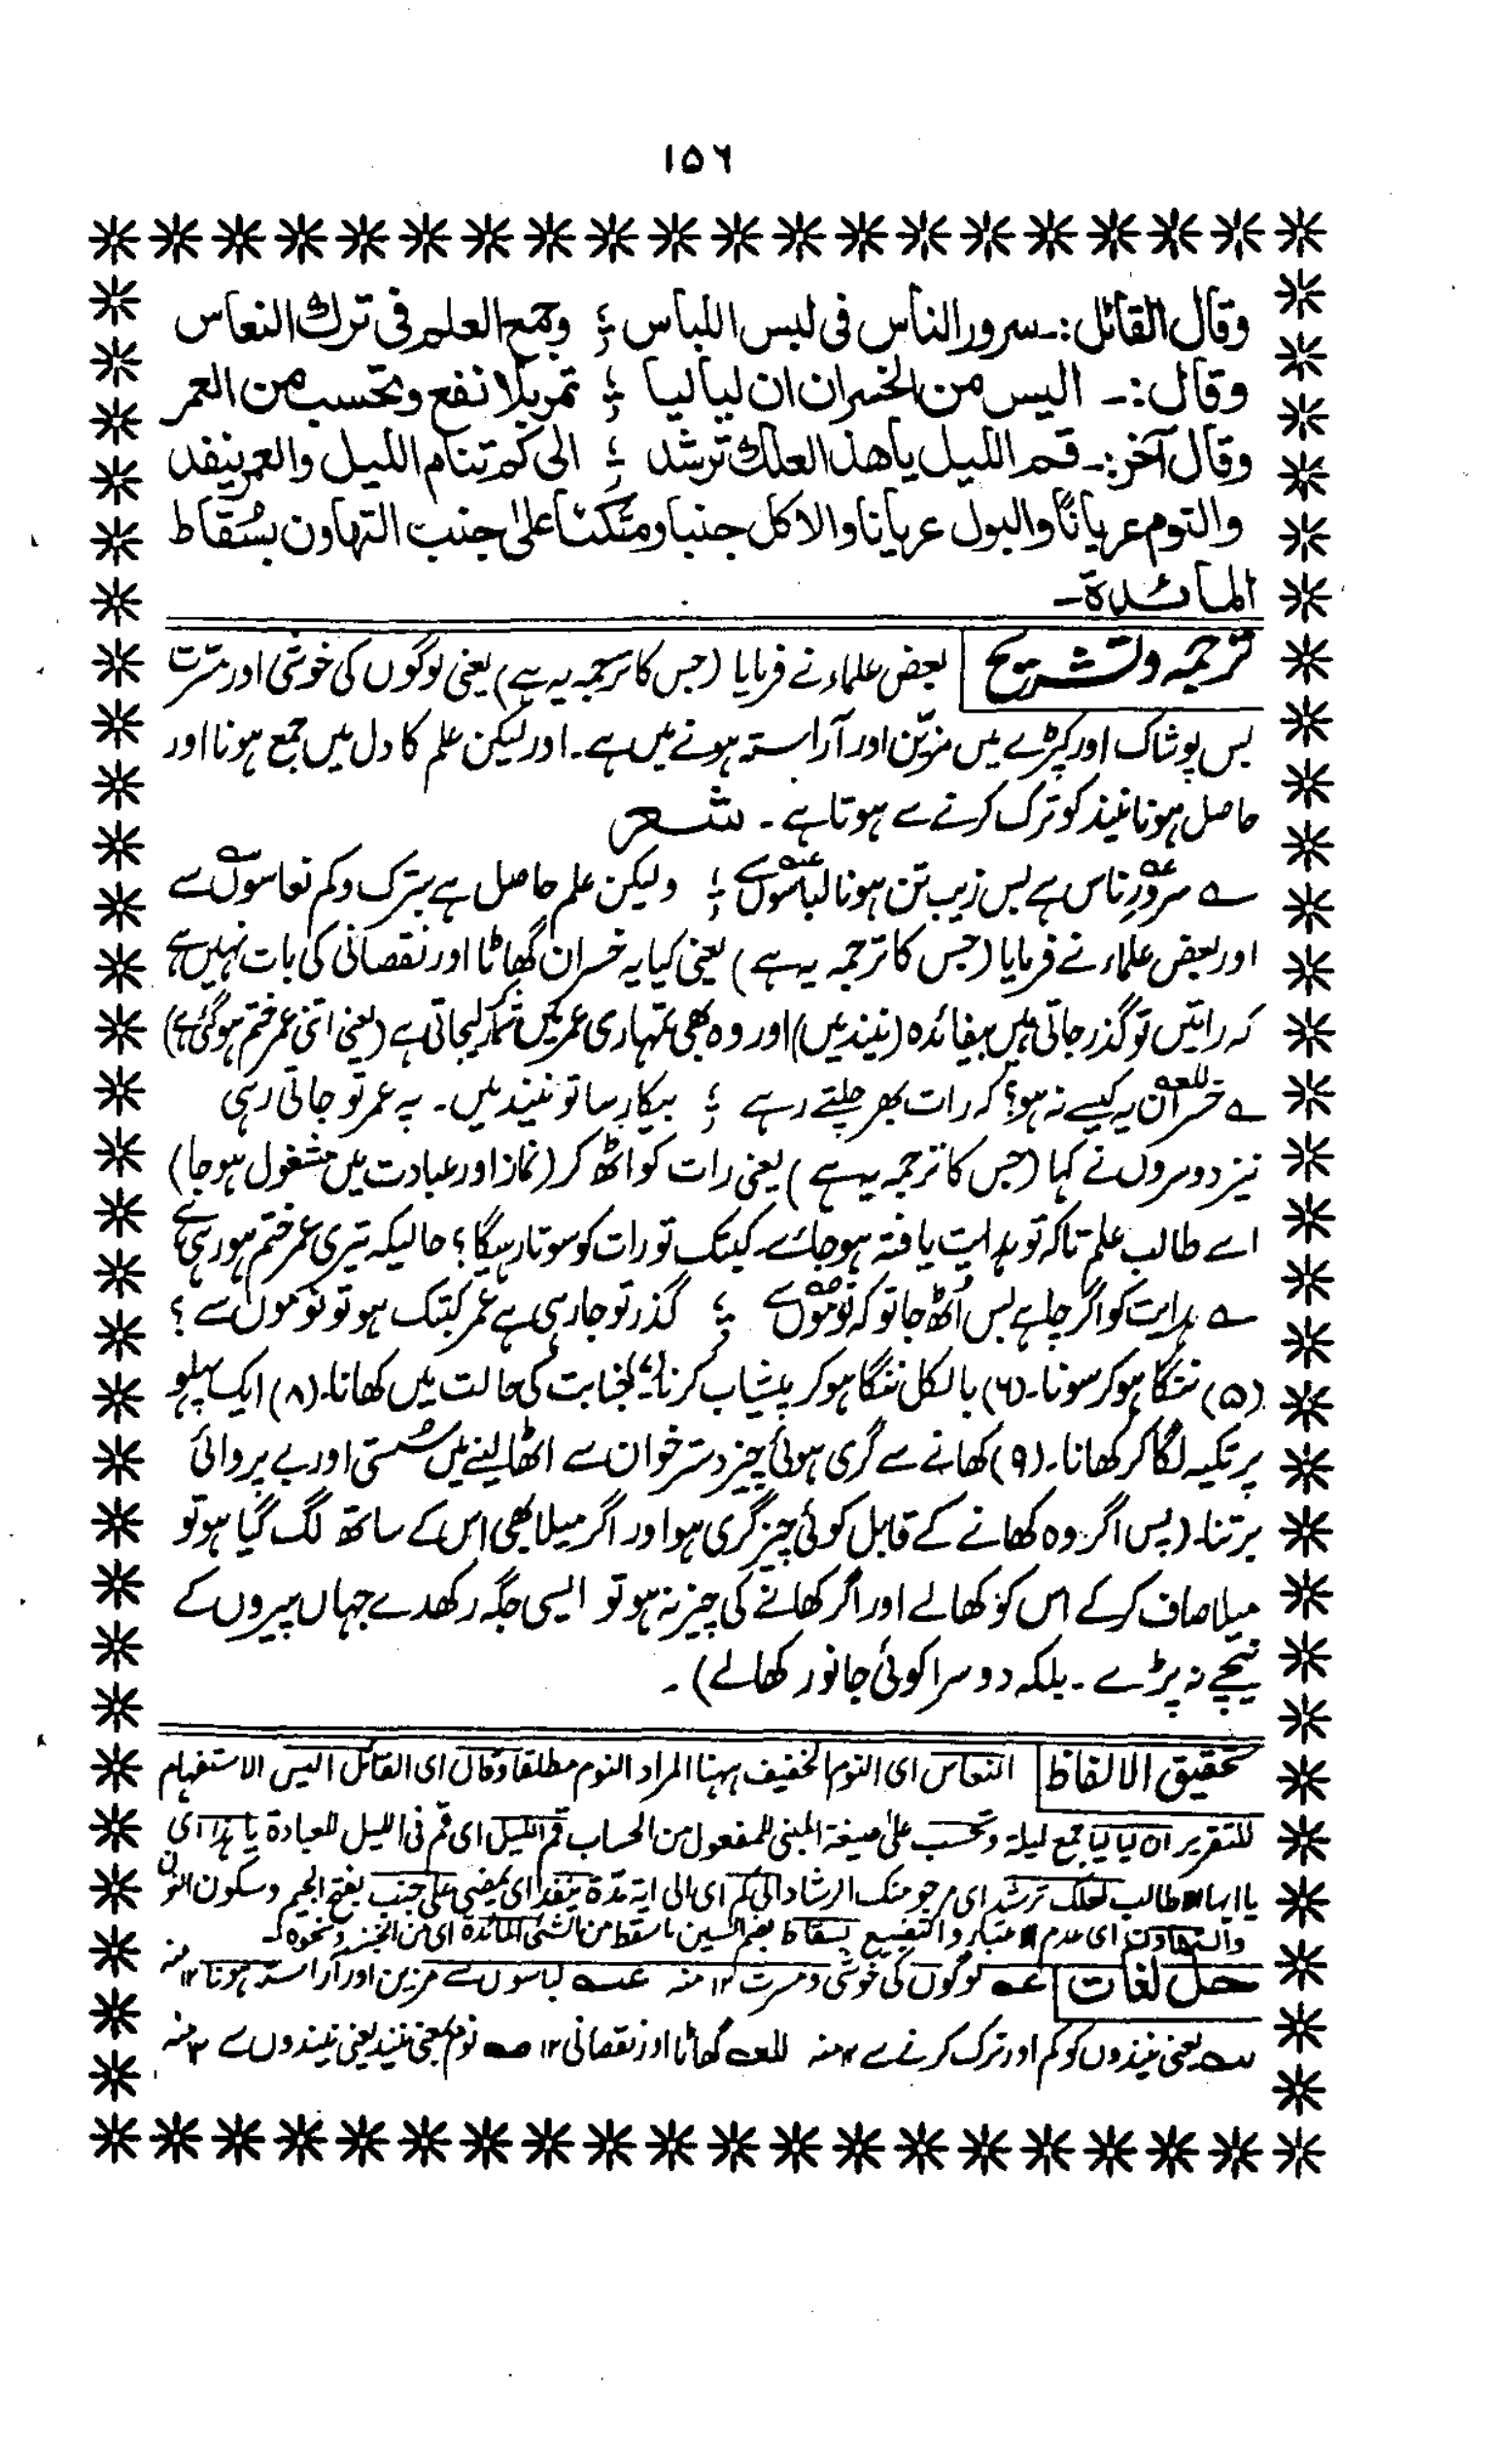 ۱۵۶
وقال القائل:۔ سرور الناس فی لبس اللباس ؛ وجمع العلم فی ترك النعاس
وقال:۔ الیس من الخسران ان لیالیا ؛ تمر بلا نفع وتحسب من العمر
وقال آخر:۔ قم اللیل یا هذا لعلك ترشد ؛ الی کم تنام اللیل والعمر ینفد
والنوم عریانًا والبول عریانا والاکل جنبا ومتکئا علیٰ جنب التهاون بسُقاط
المائدة۔
ترجمہ وتشریح بعض علماء نے فرمایا (جس کا ترجمہ یہ ہے) یعنی لوگوں کی خوشی اور مسرت
بس پوشاک اور کپڑے میں مزیّن اور آراستہ ہونے میں ہے۔ اور لیکن علم کا دل میں جمع ہونا اور
حاصل ہونا نیند کو ترک کرنے سے ہوتا ہے۔ شعر
؎ سرورِ ناس ہے بس زیب تن ہونا لباسوں سے ؛ ولیکن علم حاصل ہے بترک وکم نعاسوں سے
اور بعض علماء نے فرمایا (جس کا ترجمہ یہ ہے) یعنی کیا یہ خسران گھاٹا اور نقصانی کی بات نہیں ہے
کہ راتیں تو گذر جاتی ہیں بیفائدہ (نیند میں) اور وہ بھی تمہاری عمر میں شمار کیجاتی ہے (یعنی اتنی عمر ختم ہوگئی ہے)
؎ خسران یہ کیسے نہ ہو؟ کہ رات بھر چلتے رہے ؛ بیکار سا تو نیند میں۔ پہ عمر تو جاتی رہی
نیز دوسروں نے کہا (جس کا ترجمہ یہ ہے) یعنی رات کو اٹھ کر (نماز اور عبادت میں مشغول ہوجا)
اے طالب علم تاکہ تو ہدایت یافتہ ہوجائے۔ کبتک تو رات کو سوتا رہیگا؟ حالیکہ تیری عمر ختم ہورہی ہے
؎ ہدایت کو اگر چاہے بس اُٹھ جا تو کہ نوموں سے ؛ گذر تو جارہی ہے عمر کبتک ہو تو نوموں سے ؟
(۵) ننگا ہوکر سونا۔ (۶) بالکل ننگا ہوکر پیشاب کرنا۔ (۷) جنابت کی حالت میں کھانا۔ (۸) ایک پہلو
پر تکیہ لگا کر کھانا۔ (۹) کھانے سے گری ہوئی چیز دسترخوان سے اٹھالینے میں سُستی اور بے پروائی
برتنا۔ (پس اگر وہ کھانے کے قابل کوئی چیز گری ہو اور اگر میلا بھی اس کے ساتھ لگ گیا ہو تو
میلا صاف کرکے اس کو کھالے اور اگر کھانے کی چیز نہ ہو تو ایسی جگہ رکھدے جہاں پیروں کے
نیچے نہ پڑے۔ بلکہ دوسرا کوئی جانور کھالے)۔
تحقیق الالفاظ النعاس ای النوم الخفیف ہہنا المراد النوم مطلقا وقال ای القائل الیس الاستفہام
للتقریر ان لیالیا جمع لیلة وتحسب علیٰ صیغة المبنی للمفعول من الحساب قم اللیل ای قم فی اللیل للعبادة یا ہذا ای
یا ایہا الطالب لعلک ترشد ای مرجو منک الرشاد الی کم ای الی ایة مدة ینفد ای یمضی علی جنب بفتح الجیم وسکون النون
والتهاون ای عدم بسقاط بضم السین ما سقط من الشئ المائدة ای من الخبز ونحوہ
حل لغات عہ لوگوں کی خوشی ومسرت ۱۲ منہ عہ لباسوں سے مزین اور آراستہ ہونا ۱۲ منہ
سہ یعنی نیندوں کو کم اور ترک کرنے سے ۱۲ منہ للعہ گھاٹا اور نقصانی ۱۲ صہ نوم بمعنی نیند یعنی نیندوں سے ۱۲ منہ